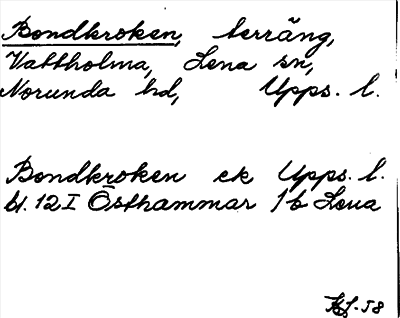 Bondkroken, terräng,
Vattholma, Lena sn,
Norunda hd, Upps. l.
Bondkroken ek Upps. l.
bl. 12 I Östhammar 1b Lena
58